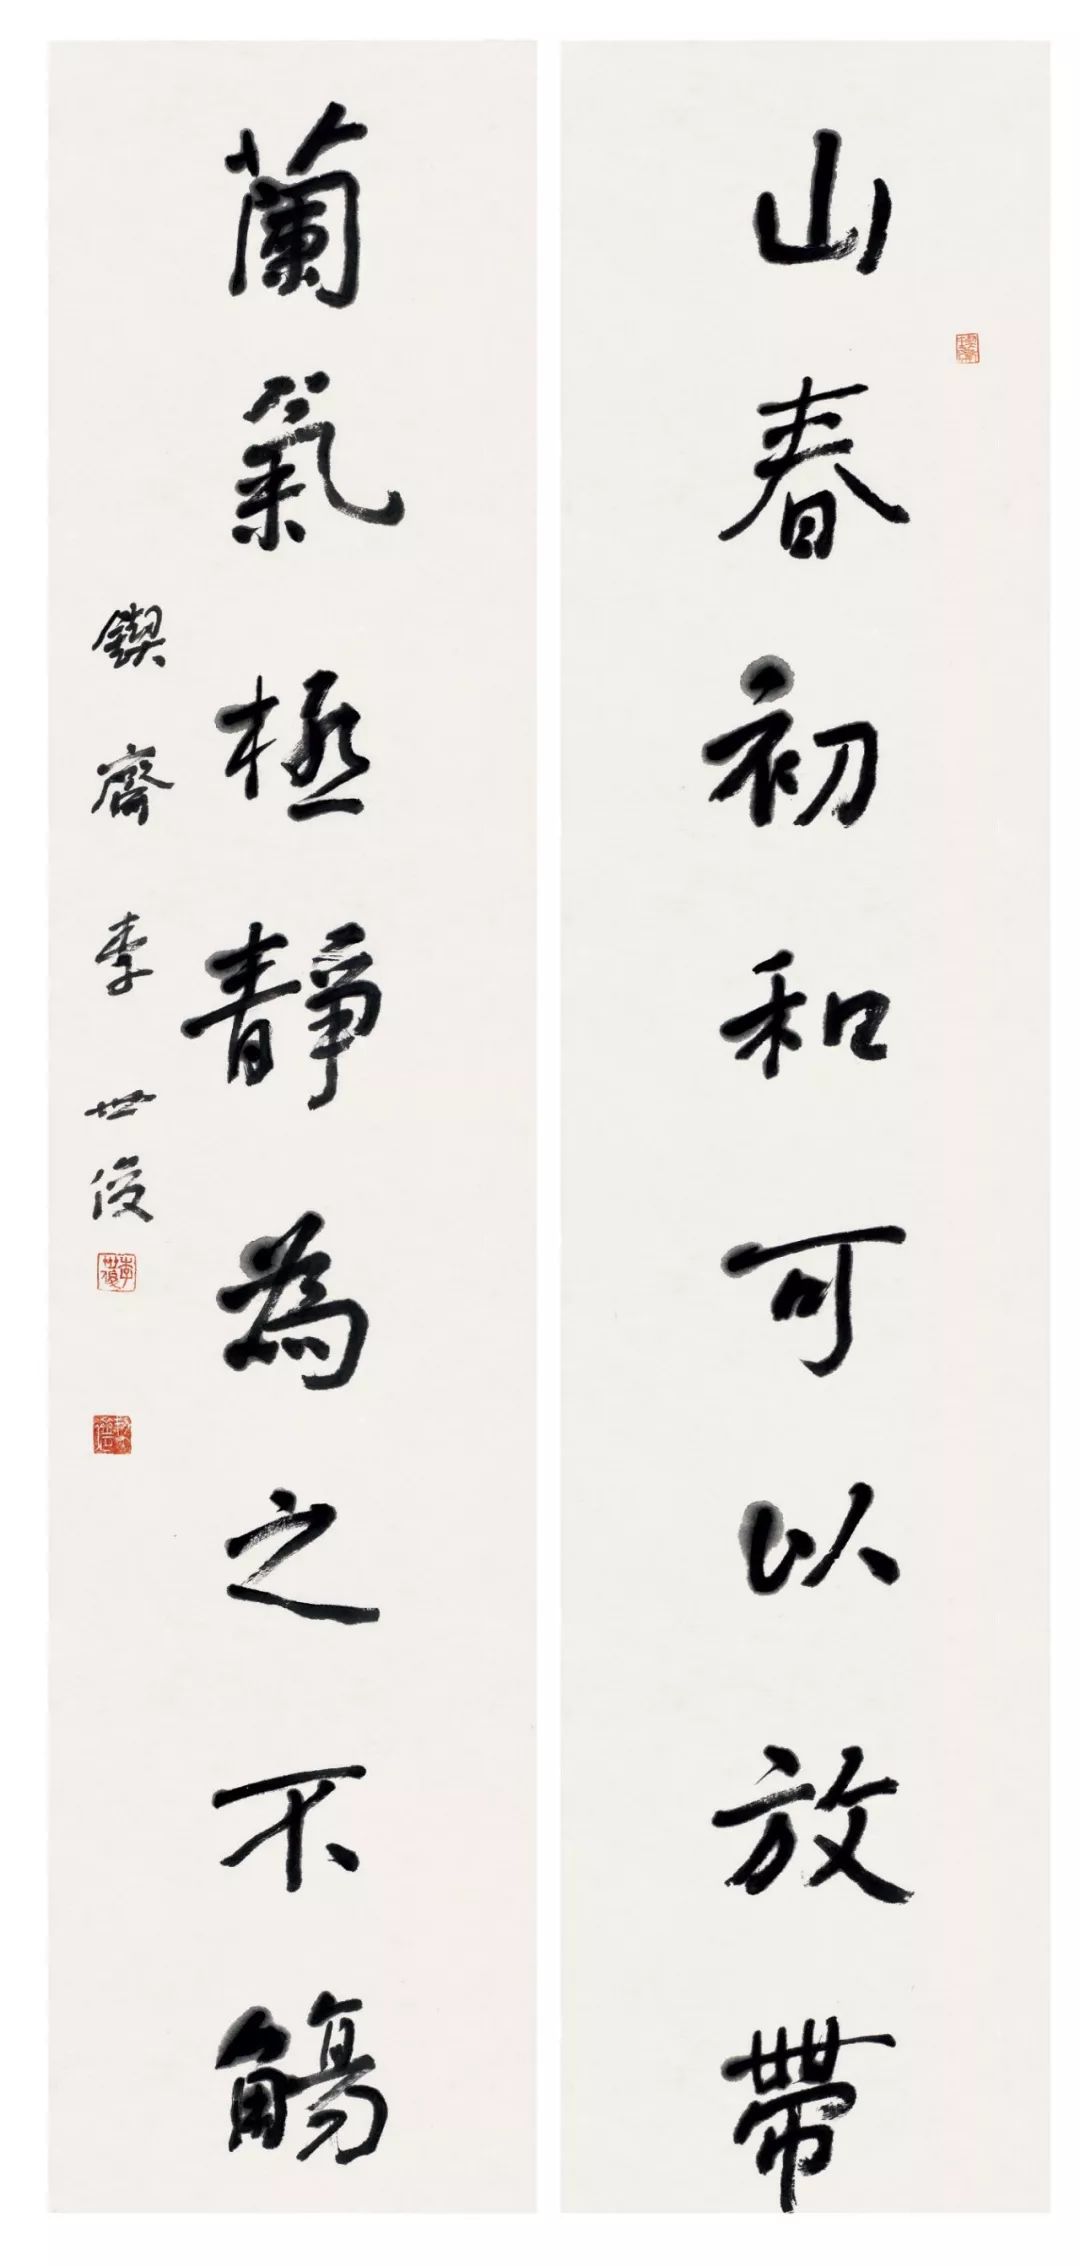 山春初和可以放帶
蘭氣極靜為之不觴
鍥齋李世俊
李世俊